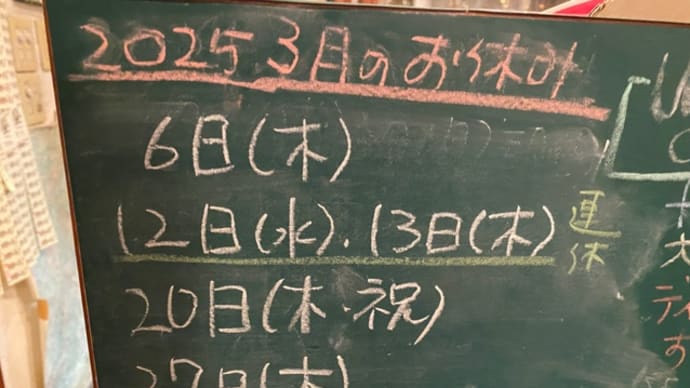 2025 3月のお休み
6日(木)
12日(水)、13日(木) 連休
20日(木・祝)
27日(木)